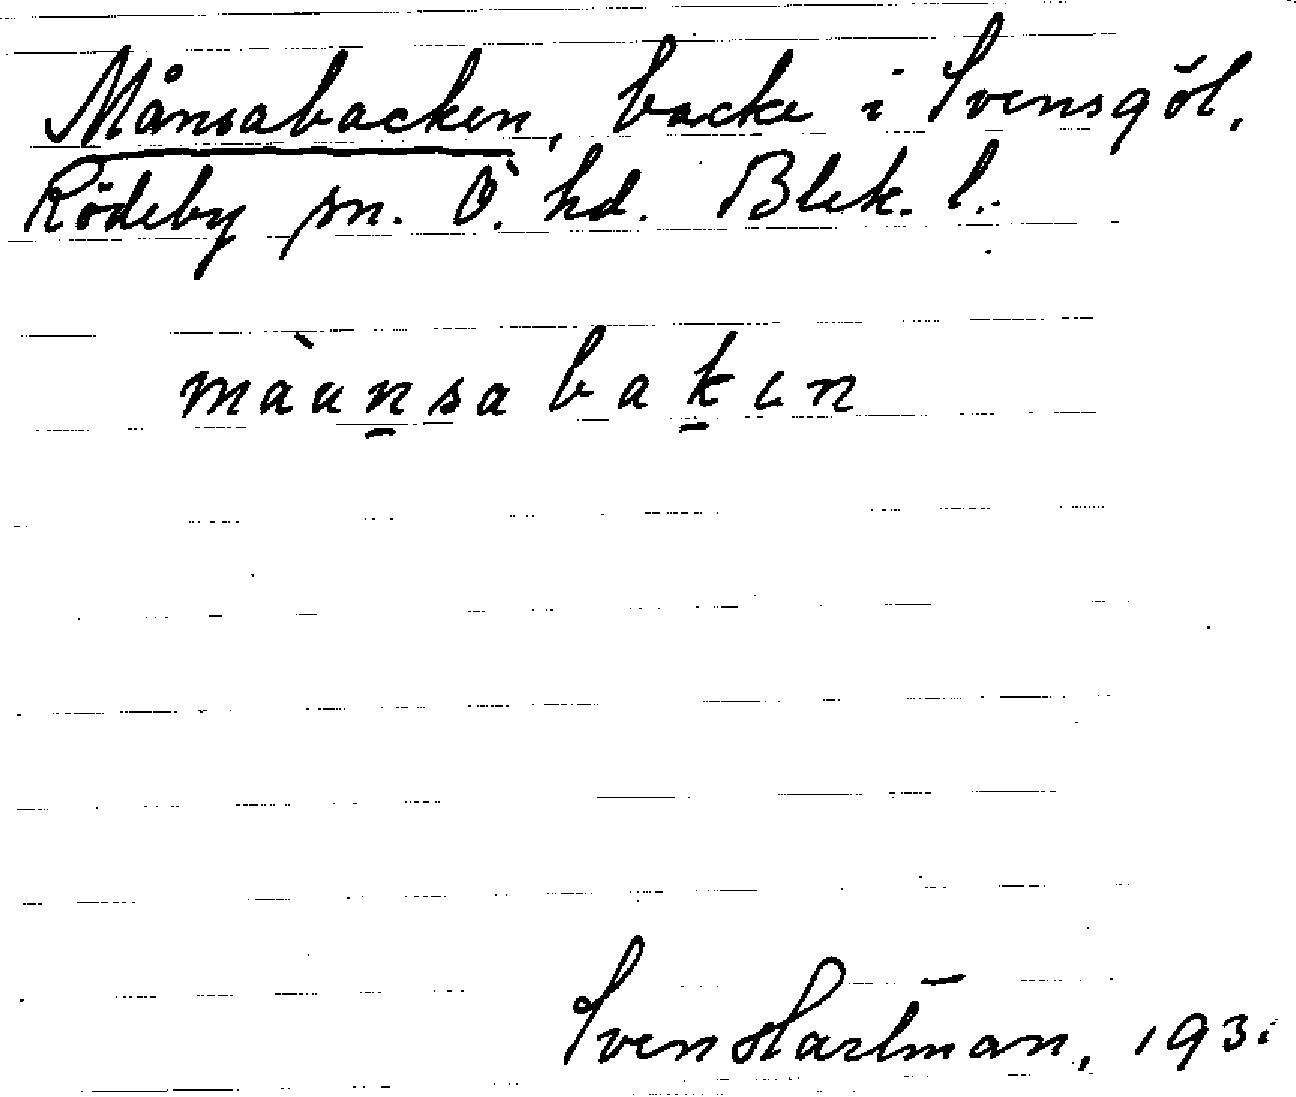 Månsabacken, backe i Svensgöl,
Rödeby sn. Ö. hd. Blek. l.
màunsabakɩn
Sven Hartman, 193